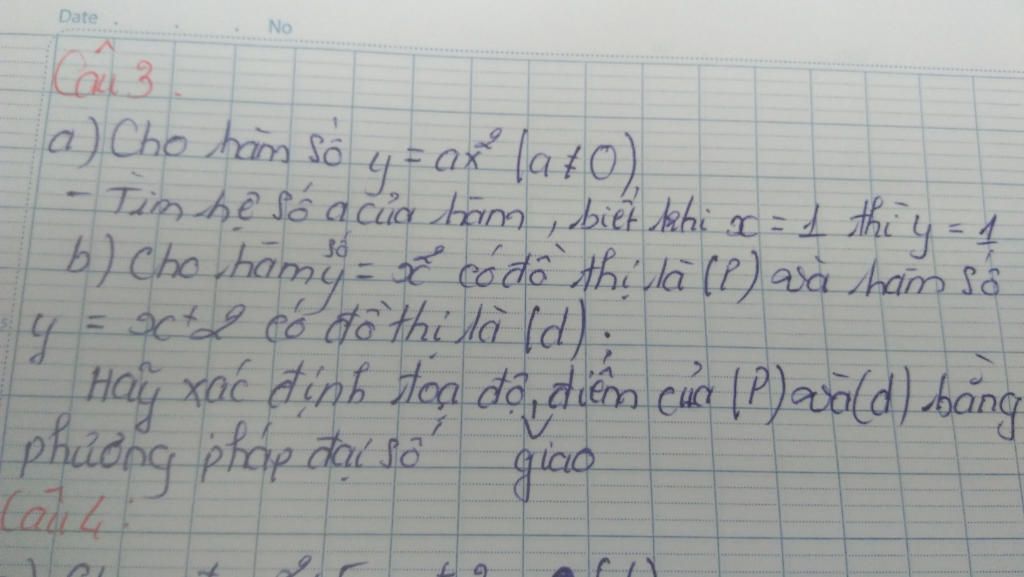 Date . . . No
Câu 3.
a) Cho hàm số y = ax² (a ≠ 0)
- Tìm hệ số a của hàm, biết khi x = 1 thì y = 1
b) Cho hàm số y = x² có đồ thị là (P) và hàm số
y = x + 2 có đồ thị là (d).
Hãy xác định tọa độ, điểm của (P) và (d) bằng
phương pháp đại số giao
Câu 4: